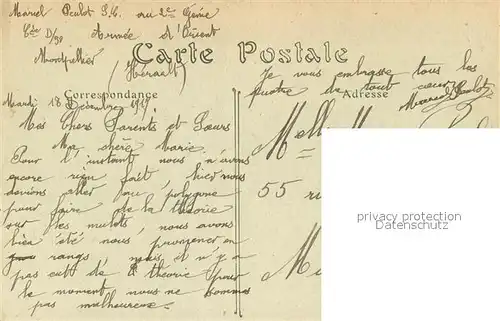 Marcel Peulot S.C. au 2e Génie
Cie D/90 Armée d'Orient
Montpellier
(Hérault)
Carte Postale
Je vous embrasse tous les
quatre de tout cœur
Marcel Peulot
Correspondance
Adresse
Mardi 18 Décembre 1917
Mes Chers Parents et Sœurs
Ma chère Marie
Pour l'instant nous n'avons
encore rien fait hier nous
devions aller au polygone
pour faire de la théorie
sur les mulots, nous avons
bien été nous promener en
rangs, mais il n'y a
pas eut de théorie pour
le moment nous ne sommes
pas malheureux
55
privacy protection
Datenschutz